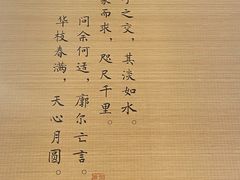 之交，其淡如水。
而求，咫尺千里。
问余何适，廓尔亡言。
华枝春满，天心月圆。